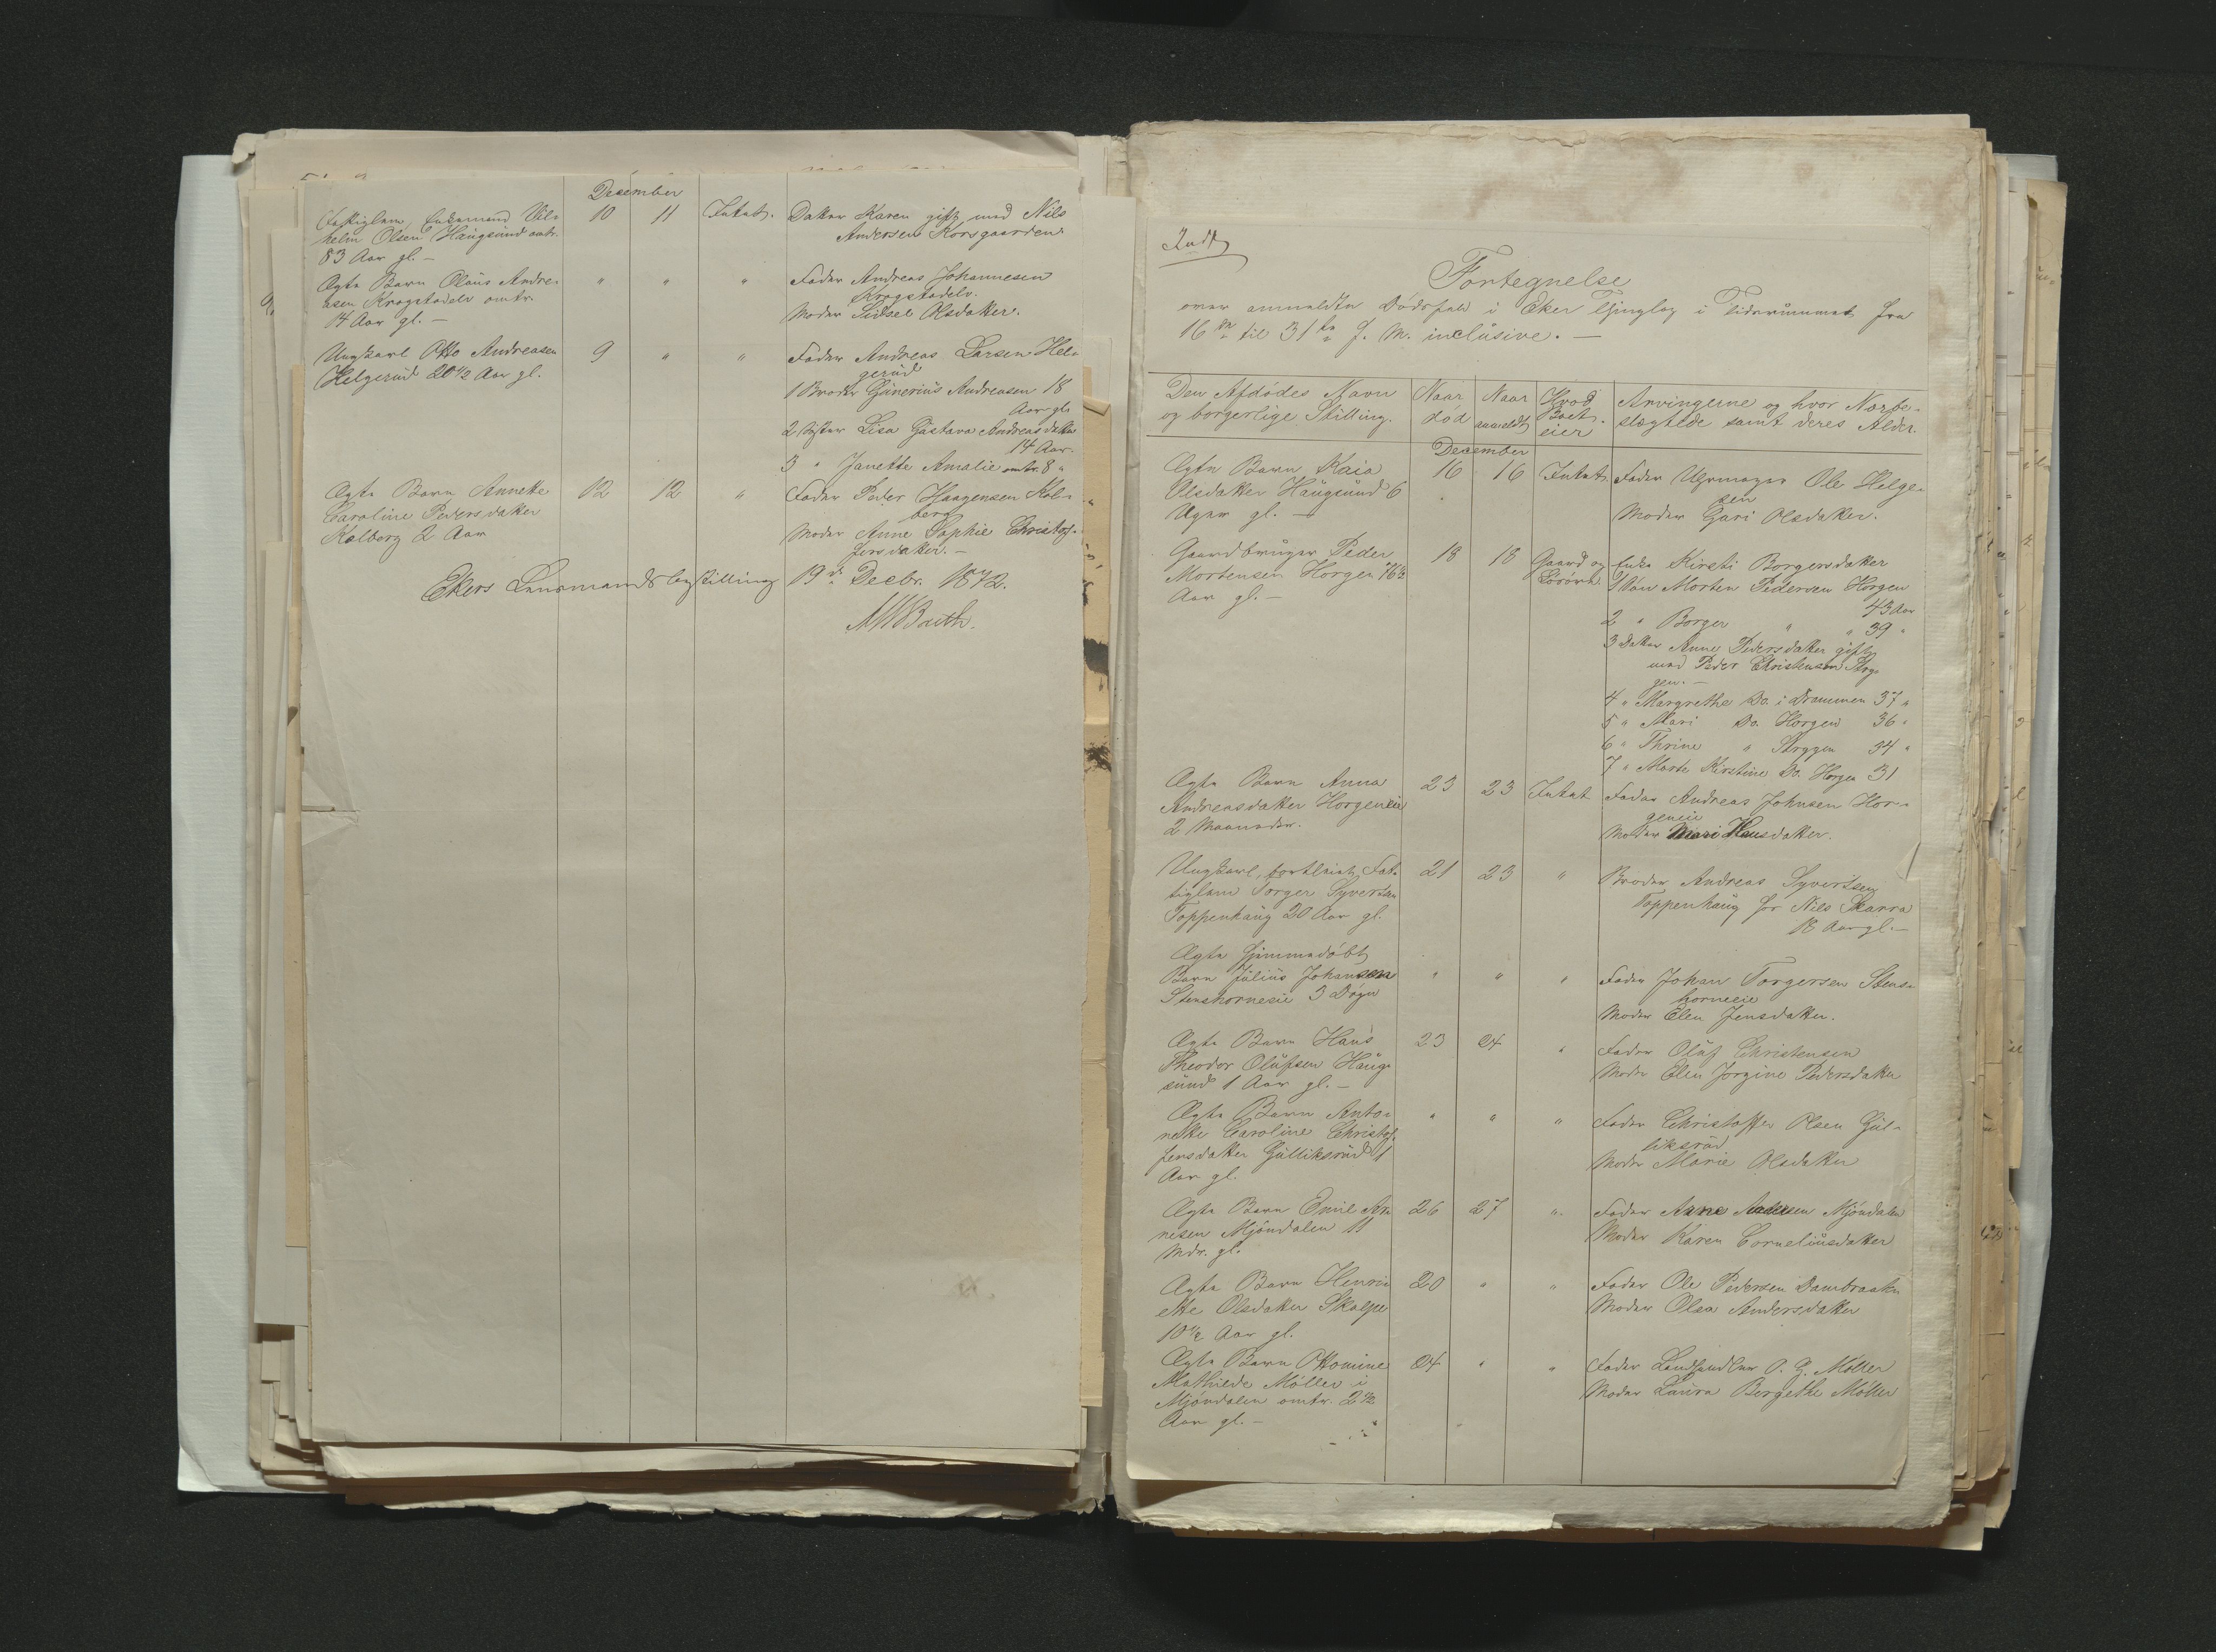 December
Fattiglem, Enkemand Vil-
helm Olsen Haugsund omtr.
83 Aar gl. —
10 11 Intet.
Datter Karen gift med Nils
Andersen Korsgaarden
Ægte Barn Olaus Andre-
asen Krogstadelv omtr.
14 Aar gl. —
" " "
Fader Andreas Johannesen
Krogstadelv.
Moder Sidsel Olsdatter.
Ungkarl Otto Andreasen
Helgerud 20 1/2 Aar gl.
9 " "
Fader Andreas Larsen Hel-
gerud
1 Broder Gunerius Andreasen 18
Aar gl.
2 Søster Lisa Gustava Andreasdatter
14 Aar.
3 " Janette Amalie omtr. 8 "
Ægte Barn Annette
Caroline Pedersdatter
Kolberg 2 Aar
12 12 "
Fader Peder Haagensen Kol-
berg
Moder Anne Sophie Christof-
fersdatter. —
Ekers Lensmandsbestilling 19de Decbr. 1872.
Indt
Fortegnelse
over anmeldte Dødsfald i Eker Thinglag i Tidsrummet fra
16de til 31te d. M. inclusive. —
Den Afdødes Navn
og borgerlige Stilling.
Naar
død
Naar
anmeldt
Hvad
Boet
eier
Arvingerne og hvor Nærbe-
slægtede samt deres Alder.
December
Ægte Barn Kaia
Olsdatter Haugsund 6
Uger gl. —
16 16 Intet.
Fader Uhrmager Ole Helge-
sen
Moder Gari Olsdatter.
Gaardbruger Peder
Mortensen Horgen 76 1/2
Aar gl. —
18 18 Gaard og
Løsøre.
Enke Kirsti Borgersdatter
1 Søn Morten Pedersen Horgen
43 Aar
2 " Borger " " 39 "
3 Datter Anne Pedersdatter gift
med Peder Christensen Stryg-
gen. —
4 " Margrethe Do. i Drammen 37 "
5 " Mari Do. Horgen 36 "
6 " Thrine " Stryggen 34 "
7 " Marte Kirstine Do. Horgen 31
Ægte Barn Anna
Andreasdatter Horgeneie
2 Maaneder.
23 23 Intet
Fader Andreas Johnsen Hor-
geneie
Moder Mari Hansdatter.
Ungkarl, forpleiet Fat-
tiglem Torger Syvertsen
Toppenhaug 20 Aar gl.
21 23 "
Broder Andreas Syvertsen
Toppenhaug for Nils Skarra
18 Aar gl. —
Ægte hjemmedøbt
Barn Julius Johansen
Stenshorneeie 3 Døgn
" " "
Fader Johan Torgersen Stens-
horneeie
Moder Elen Jensdatter.
Ægte Barn Hans
Theodor Olufsen Haug-
sund 1 Aar gl. —
23 24 "
Fader Oluf Christensen
Moder Elen Jorgine Pedersdatter
Ægte Barn Anto-
nette Caroline Christof-
fersdatter Gulliksrud 1
Aar gl.
" " "
Fader Christoffer Olsen Gul-
liksrud
Moder Marie Olsdatter
Ægte Barn Emil Ar-
nesen Mjøndalen 11
Mdr. gl.
26 27 "
Fader Arne Andersen Mjøndalen
Moder Karen Corneliusdatter
Ægte Barn Henri-
ette Olsdatter Skalpe
10 1/2 Aar gl.
20 " "
Fader Ole Pedersen Dambraaten
Moder Olea Andersdatter
Ægte Barn Ottomine
Mathilde Møller i
Mjøndalen omtr. 2 1/2
Aar gl. —
24 " "
Fader Landhandler O. G. Møller
Moder Laura Bergethe Møller